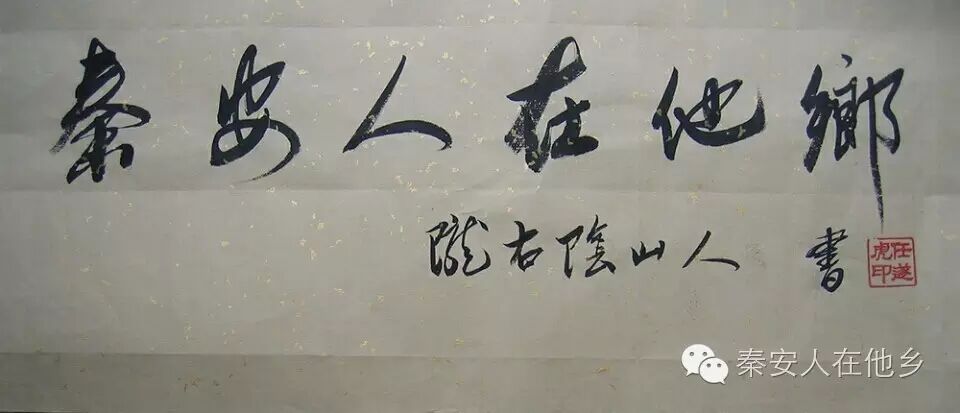 秦安人在他鄉
隴右陰山人 書
任遂
虎印
秦安人在他乡